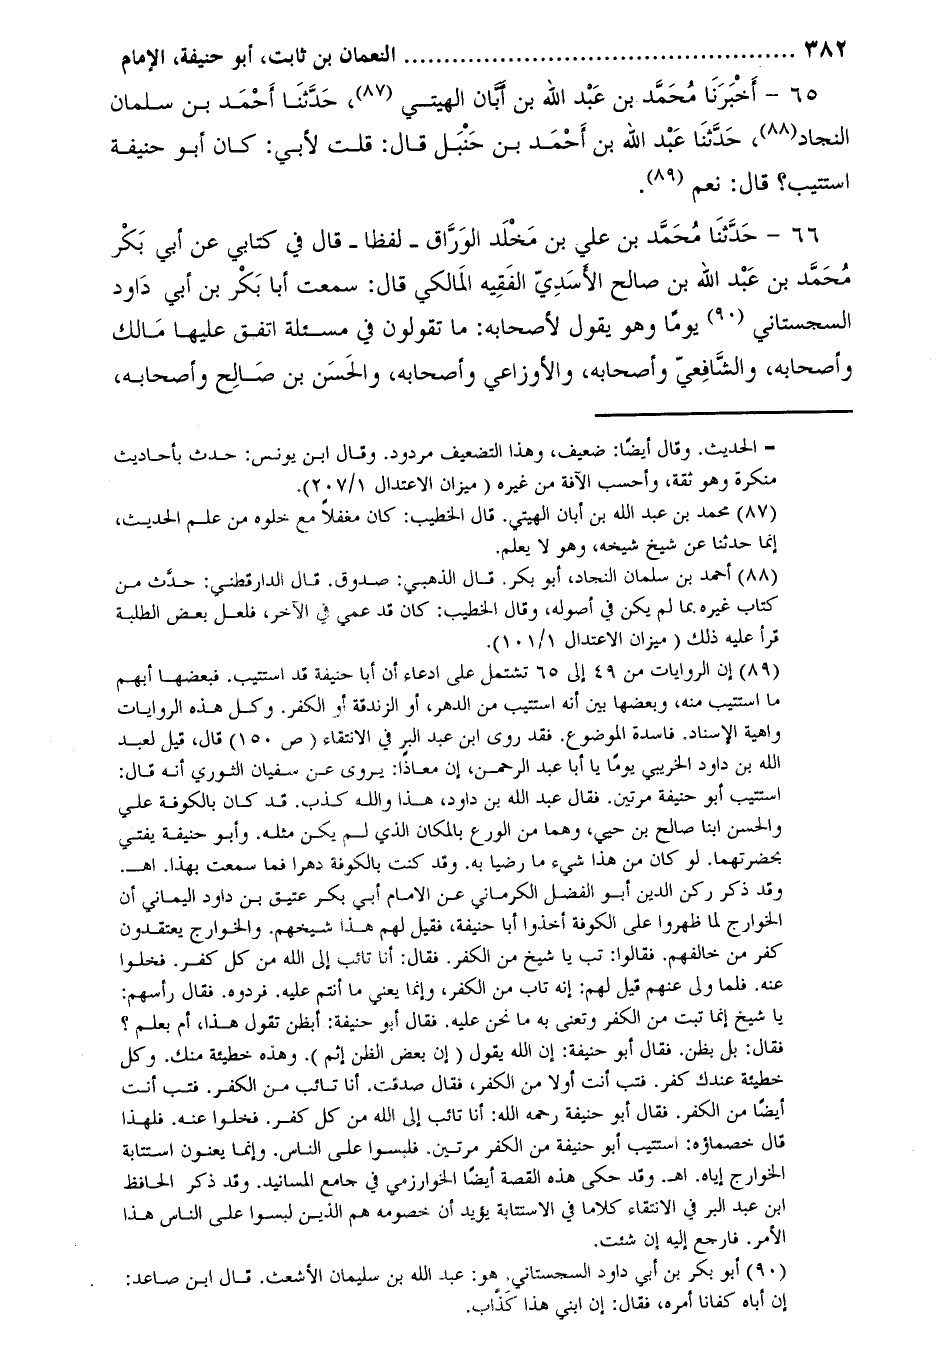 ٣٨٢ ................................................ النعمان بن ثابت، أبو حنيفة، الإمام
٦٥ - أَخْبَرَنَا مُحَمَّد بن عَبْد الله بن أَبَان الهيتي (٨٧)، حَدَّثَنَا أَحْمَد بن سلمان
النجاد(٨٨)، حَدَّثَنَا عَبْد الله بن أَحْمَد بن حَنْبَل قال: قلت لأبي: كان أبو حنيفة
استتيب؟ قال: نعم (٨٩).
٦٦ - حَدَّثَنَا مُحَمَّد بن علي بن مَخْلَد الوَرَّاق ـ لفظا ـ قال في كتابي عن أبي بَكْر
مُحَمَّد بن عَبْد الله بن صالح الأَسَدِيّ الفَقِيه المَالكي قال: سمعت أبا بَكْر بن أبي دَاود
السجستاني (٩٠) يومًا وهو يقول لأصحابه: ما تقولون في مسئلة اتفق عليها مَالك
وأصحابه، والشَّافِعيّ وأصحابه، والأوزاعي وأصحابه، والحَسَن بن صَالِح وأصحابه،
= الحديث. وقال أيضًا: ضعيف، وهذا التضعيف مردود. وقال ابن يونس: حدث بأحاديث
منكرة وهو ثقة، وأحسب الآفة من غيره ( ميزان الاعتدال ٢٠٧/١).
(٨٧) محمد بن عبد الله بن أبان الهيتي. قال الخطيب: كان مغفلاً مع خلوه من علم الحديث،
إنما حدثنا عن شيخ شيخه، وهو لا يعلم.
(٨٨) أحمد بن سلمان النجاد، أبو بكر. قال الذهبي: صدوق. قال الدارقطني: حدَّث من
كتاب غيره بما لم يكن في أصوله، وقال الخطيب: كان قد عمي في الآخر، فلعل بعض الطلبة
قرأ عليه ذلك ( ميزان الاعتدال ١٠١/١).
(٨٩) إن الروايات من ٤٩ إلى ٦٥ تشتمل على ادعاء أن أبا حنيفة قد استتيب. فبعضها أبهم
ما استتيب منه، وبعضها بين أنه استتيب من الدهر، أو الزندقة أو الكفر. وكل هذه الروايات
واهية الإسناد. فاسدة الموضوع. فقد روى ابن عبد البر في الانتقاء ( ص ١٥٠) قال، قيل لعبد
الله بن داود الخريبي يومًا يا أبا عبد الرحمن، إن معاذًا: يروى عن سفيان الثوري أنه قال:
استتيب أبو حنيفة مرتين. فقال عبد الله بن داود، هذا والله كذب. قد كان بالكوفة علي
والحسن ابنا صالح بن حيي، وهما من الورع بالمكان الذي لم يكن مثله. وأبو حنيفة يفتي
بحضرتهما. لو كان من هذا شيء ما رضيا به. وقد كنت بالكوفة دهرا فما سمعت بهذا. اهـ.
وقد ذكر ركن الدين أبو الفضل الكرماني عن الامام أبي بكر عتيق بن داود اليماني أن
الخوارج لما ظهروا على الكوفة أخذوا أبا حنيفة، فقيل لهم هذا شيخهم. والخوارج يعتقدون
كفر من خالفهم. فقالوا: تب يا شيخ من الكفر. فقال: أنا تائب إلى الله من كل كفر. فخلوا
عنه. فلما ولى عنهم قيل لهم: إنه تاب من الكفر، وإنما يعني ما أنتم عليه. فردوه. فقال رأسهم:
يا شيخ إنما تبت من الكفر وتعنى به ما نحن عليه. فقال أبو حنيفة: أبظن تقول هذا، أم بعلم ؟
فقال: بل بظن. فقال أبو حنيفة: إن الله يقول ( إن بعض الظن إثم ). وهذه خطيئة منك. وكل
خطيئة عندك كفر. فتب أنت أولا من الكفر، فقال صدقت. أنا تائب من الكفر. فتب أنت
أيضًا من الكفر. فقال أبو حنيفة رحمه الله: أنا تائب إلى الله من كل كفر. فخلوا عنه. فلهذا
قال خصماؤه: استتيب أبو حنيفة من الكفر مرتين. فلبسوا على الناس. وإنما يعنون استتابة
الخوارج إياه. اهـ. وقد حكى هذه القصة أيضًا الخوارزمي في جامع المسانيد. وقد ذكر الحافظ
ابن عبد البر في الانتقاء كلاما في الاستتابة يؤيد أن خصومه هم الذين لبسوا على الناس هذا
الأمر. فارجع إليه إن شئت.
(٩٠) أبو بكر بن أبي داود السجستاني. هو: عبد الله بن سليمان الأشعث. قال ابن صاعد:
إن أباه كفانا أمره، فقال: إن ابني هذا كَذَّاب.